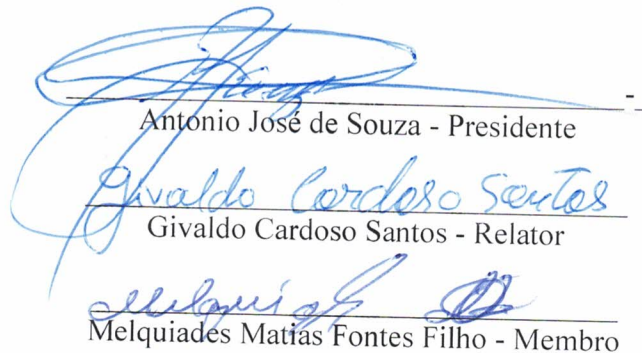 Antonio José de Souza - Presidente
Givaldo Cardoso Santos
Givaldo Cardoso Santos - Relator
Melquiades Matias Fontes Filho - Membro